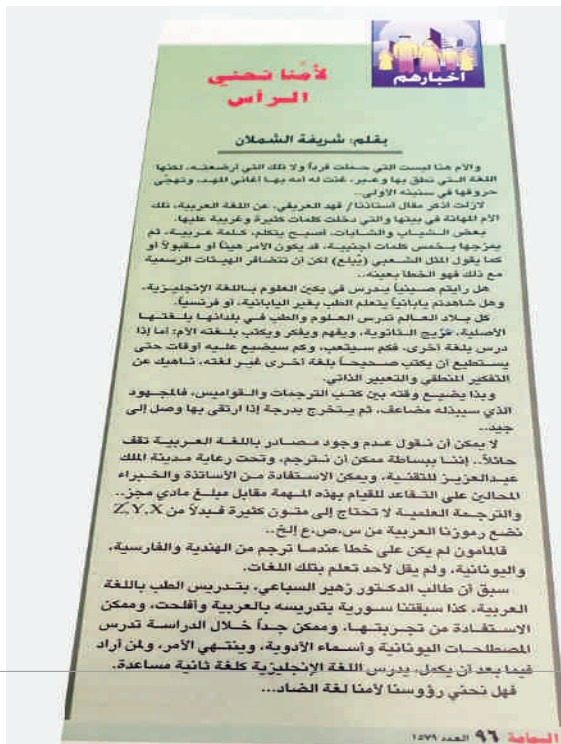 أخبارهم
لأمّنا نحني
الرأس
بقلم: شريفة الشملان
والأم هنا ليست التي حملت فرداً ولا تلك التي أرضعته، لكنها
اللغة التي نطق بها وعبر، غنت له أمه بها أغاني المهد، وتهجى
حروفها في سنينه الأولى..
لازلت أذكر مقال أستاذنا/ فهد العريفي، عن اللغة العربية، تلك
الأم المهانة في بيتها والتي دخلت كلمات كثيرة وغريبة عليها.
بعض الشباب والشابات، أصبح يتكلم، كلمة عربية، ثم
يمزجها بخمس كلمات أجنبية، قد يكون الأمر هيناً أو مقبولاً أو
كما يقول المثل الشعبي (يُبلع) لكن أن تتضافر الهيئات الرسمية
مع ذلك فهو الخطأ بعينه..
هل رأيتم صينياً يدرس في بكين العلوم باللغة الإنجليزية،
وهل شاهدتم يابانياً يتعلم الطب بغير اليابانية، أو فرنسياً.
كل بلاد العالم تدرس العلوم والطب في بلدانها بلغتها
الأصلية، خريج الثانوية، ويفهم ويفكر ويكتب بلغته الأم: أما إذا
درس بلغة أخرى، فكم سيتعب، وكم سيضيع عليه أوقات حتى
يستطيع أن يكتب صحيحاً بلغة أخرى غير لغته، ناهيك عن
التفكير المنطقي والتعبير الذاتي.
وبذا يضيع وقته بين كتب الترجمات والقواميس، فالمجهود
الذي سيبذله مضاعف، ثم يتخرج بدرجة إذا ارتقى بها وصل إلى
جيد..
لا يمكن أن نقول عدم وجود مصادر باللغة العربية تقف
حائلاً.. إننا ببساطة ممكن أن نترجم، وتحت رعاية مدينة الملك
عبدالعزيز للتقنية، ويمكن الاستفادة من الأساتذة والخبراء
المحالين على التقاعد للقيام بهذه المهمة مقابل مبلغ مادي مجز..
والترجمة العلمية لا تحتاج إلى متون كثيرة فبدلاً من Z,Y,X
نضع رموزنا العربية من س،ص،ع إلخ..
فالمأمون لم يكن على خطأ عندما ترجم من الهندية والفارسية،
واليونانية، ولم يقل لأحد تعلم بتلك اللغات.
سبق أن طالب الدكتور زهير السباعي، بتدريس الطب باللغة
العربية، كذا سبقتنا سورية بتدريسه بالعربية وأفلحت، وممكن
الاستفادة من تجربتها، وممكن جداً خلال الدراسة تدرس
المصطلحات اليونانية وأسماء الأدوية، وينتهي الأمر، ولمن أراد
فيما بعد أن يكمل، يدرس اللغة الإنجليزية كلغة ثانية مساعدة.
فهل نحني رؤوسنا لأمنا لغة الضاد...
اليمامة ٩٦ العدد ١٥٧٩